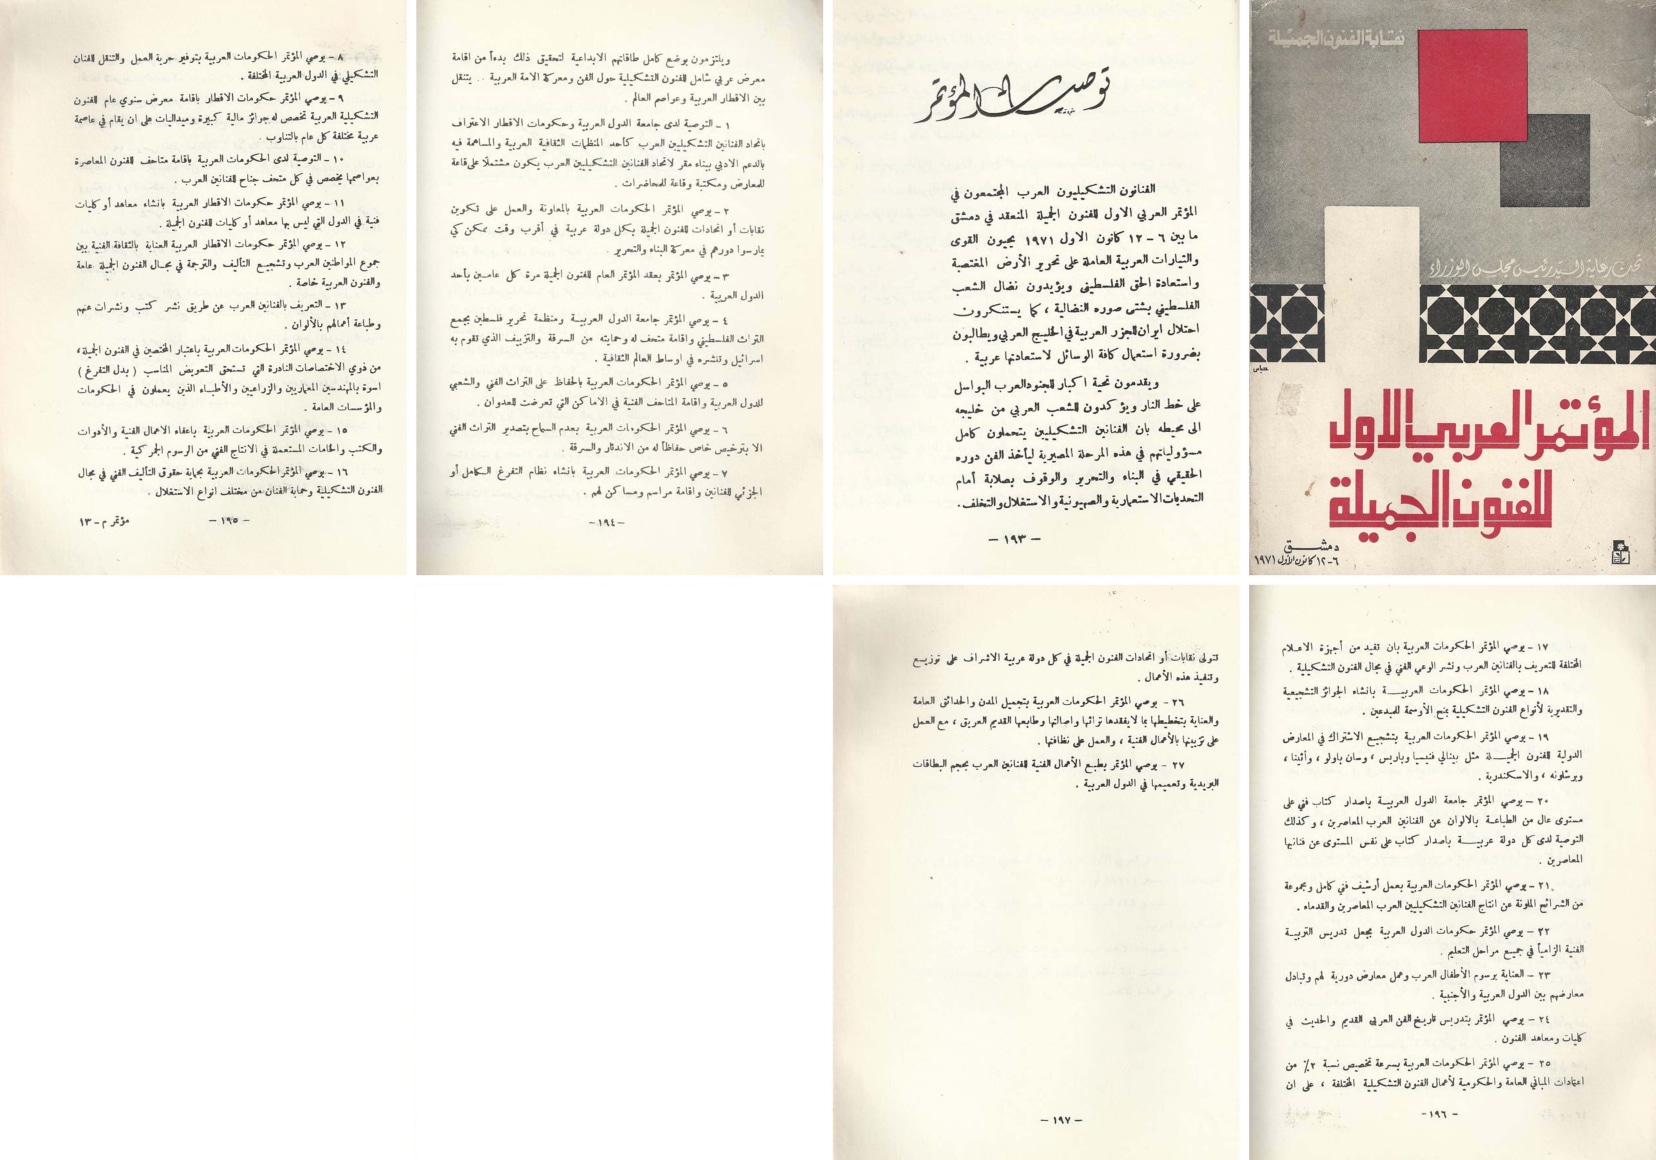 نقابة الفنون الجميلة
تحت رعاية السيد رئيس مجلس الوزراء
عباس
المؤتمر العربي الاول
للفنون الجميلة
دمشق
٦-١٢ كانون الأول ١٩٧١
توصيات المؤتمر
الفنانون التشكيليون العرب المجتمعون في
المؤتمر العربي الاول للفنون الجميلة المنعقد في دمشق
ما بين ٦ - ١٢ كانون الاول ١٩٧١ يحيون القوى
والتيارات العربية العاملة على تحرير الأرض المغتصبة
واستعادة الحق الفلسطيني ويؤيدون نضال الشعب
الفلسطيني بشتى صوره النضالية ، كما يستنكرون
احتلال ايران للجزر العربية في الخليج العربي ويطالبون
بضرورة استعمال كافة الوسائل لاستعادتها عربية .
ويقدمون تحية اكبار للجنود العرب البواسل
على خط النار ويؤكدون للشعب العربي من خليجه
الى محيطه بان الفنانين التشكيليين يتحملون كامل
مسؤولياتهم في هذه المرحلة المصيرية ليأخذ الفن دوره
الحقيقي في البناء والتحرير والوقوف بصلابة أمام
التحديات الاستعمارية والصهيونية والاستغلال والتخلف .
- ١٩٣ -
ويلتزمون بوضع كامل طاقاتهم الابداعية لتحقيق ذلك بدءاً من اقامة
معرض عربي شامل للفنون التشكيلية حول الفن ومعركة الامة العربية .. يتنقل
بين الاقطار العربية وعواصم العالم .
١ - التوصية لدى جامعة الدول العربية وحكومات الاقطار الاعتراف
باتحاد الفنانين التشكيليين العرب كأحد المنظمات الثقافية العربية والمساهمة فيه
بالدعم الادبي ببناء مقر لاتحاد الفنانين التشكيليين العرب يكون مشتملا على قاعة
للمعارض ومكتبة وقاعة للمحاضرات .
٢ - يوصي المؤتمر الحكومات العربية بالمعاونة والعمل على تكوين
نقابات أو اتحادات للفنون الجميلة بكل دولة عربية في أقرب وقت ممكن كي
يمارسوا دورهم في معركة البناء والتحرير .
٣ - يوصي المؤتمر بعقد المؤتمر العام للفنون الجميلة مرة كل عامين بأحد
الدول العربية .
٤ - يوصي المؤتمر جامعة الدول العربية ومنظمة تحرير فلسطين بجمع
التراث الفلسطيني واقامة متحف له وحمايته من السرقة والتزييف الذي تقوم به
اسرائيل وتنشره في اوساط العالم الثقافية .
٥ - يوصي المؤتمر الحكومات العربية بالحفاظ على التراث الفني والشعبي
للدول العربية واقامة المتاحف الفنية في الاماكن التي تعرضت للعدوان .
٦ - يوصي المؤتمر الحكومات العربية بعدم السماح بتصدير التراث الفني
الا بترخيص خاص حفاظاً له من الاندثار والسرقة .
٧ - يوصي المؤتمر الحكومات العربية بانشاء نظام التفرغ الكامل أو
الجزئي للفنانين واقامة مراسم ومساكن لهم .
- ١٩٤ -
٨ - يوصي المؤتمر الحكومات العربية بتوفير حرية العمل والتنقل للفنان
التشكيلي في الدول العربية المختلفة .
٩ - يوصي المؤتمر حكومات الاقطار باقامة معرض سنوي عام للفنون
التشكيلية العربية تخصص له جوائز مالية كبيرة وميداليات على ان يقام في عاصمة
عربية مختلفة كل عام بالتناوب .
١٠ - التوصية لدى الحكومات العربية باقامة متاحف للفنون المعاصرة
بعواصمها يخصص في كل متحف جناح للفنانين العرب .
١١ - يوصي المؤتمر حكومات الاقطار العربية بانشاء معاهد أو كليات
فنية في الدول التي ليس بها معاهد أو كليات للفنون الجميلة .
١٢ - يوصي المؤتمر حكومات الاقطار العربية العناية بالثقافة الفنية بين
جموع المواطنين العرب وتشجيع التأليف والترجمة في مجال الفنون الجميلة عامة
والفنون العربية خاصة .
١٣ - التعريف بالفنانين العرب عن طريق نشر كتب ونشرات عنهم
وطباعة أعمالهم بالألوان .
١٤ - يوصي المؤتمر الحكومات العربية باعتبار المختصين في الفنون الجميلة ،
من ذوي الاختصاصات النادرة التي تستحق التعويض المناسب ( بدل التفرغ )
اسوة بالمهندسين المعماريين والزراعيين والأطباء الذين يعملون في الحكومات
والمؤسسات العامة .
١٥ - يوصي المؤتمر الحكومات العربية باعفاء الاعمال الفنية والأدوات
والكتب والخامات المستعملة في الانتاج الفني من الرسوم الجمركية .
١٦ - يوصي المؤتمر الحكومات العربية بحماية حقوق التأليف الفني في مجال
الفنون التشكيلية وحماية الفنان من مختلف انواع الاستغلال .
- ١٩٥ -
مؤتمر م - ١٣
١٧ - يوصي المؤتمر الحكومات العربية بان تفيد من أجهزة الاعلام
المختلفة للتعريف بالفنانين العرب ونشر الوعي الفني في مجال الفنون التشكيلية .
١٨ - يوصي المؤتمر الحكومات العربية بانشاء الجوائز التشجيعية
والتقديرية لأنواع الفنون التشكيلية بمنح الأوسمة للمبدعين .
١٩ - يوصي المؤتمر الحكومات العربية بتشجيع الاشتراك في المعارض
الدولية للفنون الجميلة مثل بينالي فنيسيا وباريس ، وسان باولو ، وأثينا ،
وبرشلونه ، والاسكندرية .
٢٠ - يوصي المؤتمر جامعة الدول العربية باصدار كتاب فني على
مستوى عال من الطباعة بالالوان عن الفنانين العرب المعاصرين ، وكذلك
التوصية لدى كل دولة عربية باصدار كتاب على نفس المستوى عن فنانيها
المعاصرين .
٢١ - يوصي المؤتمر الحكومات العربية بعمل أرشيف فني كامل ومجموعة
من الشرائح الملونة عن انتاج الفنانين التشكيليين العرب المعاصرين والقدماء .
٢٢ - يوصي المؤتمر حكومات الدول العربية بجعل تدريس التربية
الفنية الزامياً في جميع مراحل التعليم .
٢٣ - العناية برسوم الأطفال العرب وعمل معارض دورية لهم وتبادل
معارضهم بين الدول العربية والأجنبية .
٢٤ - يوصي المؤتمر بتدريس تاريخ الفن العربي القديم والحديث في
كليات ومعاهد الفنون .
٢٥ - يوصي المؤتمر الحكومات العربية بسرعة تخصيص نسبة ٢٪ من
اعتمادات المباني العامة والحكومية لأعمال الفنون التشكيلية المختلفة ، على ان
- ١٩٦ -
تتولى نقابات أو اتحادات الفنون الجميلة في كل دولة عربية الاشراف على توزيع
وتنفيذ هذه الأعمال .
٢٦ - يوصي المؤتمر الحكومات العربية بتجميل المدن والحدائق العامة
والعناية بتخطيطها بما لا يفقدها تراثها واصالتها وطابعها القديم العريق ، مع العمل
على تزيينها بالأعمال الفنية ، والعمل على نظافتها .
٢٧ - يوصي المؤتمر بطبع الأعمال الفنية للفنانين العرب بحجم البطاقات
البريدية وتعميمها في الدول العربية .
- ١٩٧ -